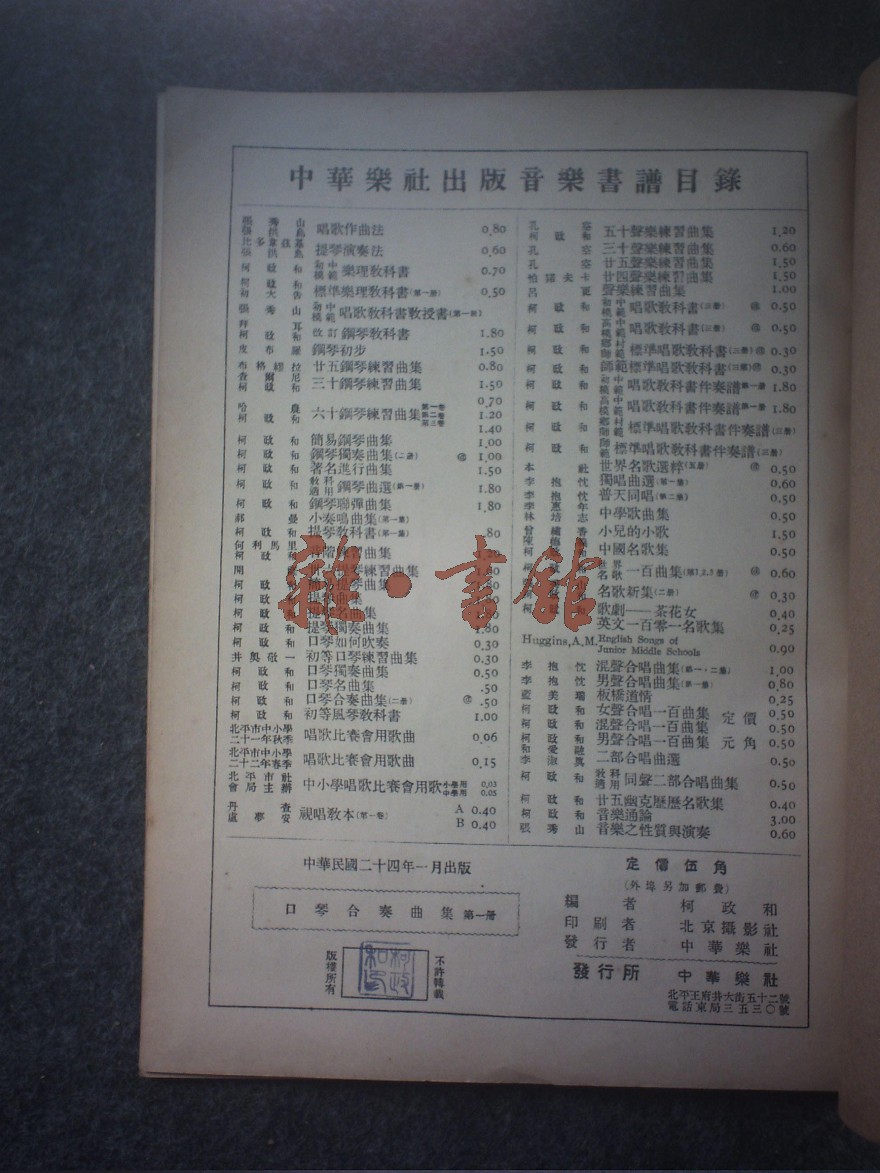 中華樂社出版音樂書譜目錄
張秀山 唱歌作曲法 0.80
提琴演奏法 0.60
柯政和 初中模範 樂理教科書 0.70
標準樂理教科書(第一册) 0.50
張秀山 初中模範 唱歌教科書教授書(第一册)
柯政和 改訂鋼琴教科書 1.80
皮布羅 鋼琴初步 1.50
布格繆拉 廿五鋼琴練習曲集 0.80
查爾尼 柯政和 三十鋼琴練習曲集 1.50
哈農 六十鋼琴練習曲集 第一卷 0.70
第二卷 1.20
第三卷 1.40
柯政和 簡易鋼琴曲集 1.00
柯政和 鋼琴獨奏曲集(二册) @ 1.00
柯政和 著名進行曲集 1.50
柯政和 教科適用 鋼琴曲選(第一册) 1.80
柯政和 鋼琴聯彈曲集 1.80
小奏鳴曲集(第一集)
柯政和 提琴教科書(第一集) .80
何利馬里
柯政和
柯政和 提琴獨奏曲集 1.80
柯政和 口琴如何吹奏 0.30
井奧敬一 初等口琴練習曲集 0.30
柯政和 口琴獨奏曲集 0.50
柯政和 口琴名曲集 .50
柯政和 口琴合奏曲集(二册) @ .50
柯政和 初等風琴教科書 1.00
北平市中小學二十一年秋季 唱歌比賽會用歌曲 0.06
北平市中小學二十二年春季 唱歌比賽會用歌曲 0.15
北平市社會局主辦 中小學唱歌比賽會用歌 小學用 0.03
中學用 0.05
丹查 盧夢安 視唱教本(第一卷) A 0.40
B 0.40
孔空 柯政和 五十聲樂練習曲集 1.20
孔空 三十聲樂練習曲集 0.60
孔空 廿五聲樂練習曲集 1.50
帕諾夫卡 廿四聲樂練習曲集 1.50
聲樂練習曲集 1.00
柯政和 初中模範 唱歌教科書(三册) @ 0.50
柯政和 高中模範 唱歌教科書(三册) @ 0.50
柯政和 鄉村師範 標準唱歌教科書(三册) @ 0.30
柯政和 師範標準唱歌教科書(三册) @ 0.30
柯政和 初中模範 唱歌教科書伴奏譜 第一册 1.80
柯政和 高中模範 唱歌教科書伴奏譜 第一册 1.80
柯政和 鄉村師範 標準唱歌教科書伴奏譜(三册)
柯政和 師範 標準唱歌教科書伴奏譜(三册)
本社 世界名歌選粹(五册) @ 0.50
李抱忱 獨唱曲選(第一集) 0.60
李抱忱 普天同唱(第二集) 0.50
李惠年 林培志 中學歌曲集 0.50
曾繡香 小兒的小歌 1.50
中國名歌集 0.50
世界名歌 一百曲集(第1,2,3册) @ 0.60
名歌新集(二册) @ 0.30
歌劇——茶花女 0.40
英文一百零一名歌集 0.25
Huggins, A.M. English Songs of Junior Middle Schools 0.90
李抱忱 混聲合唱曲集(第一·二集) 1.00
李抱忱 男聲合唱曲集(第一集) 0.80
藍美瑞 板橋道情 0.25
柯政和 女聲合唱一百曲集 定價 0.50
柯政和 混聲合唱一百曲集 0.50
柯政和 男聲合唱一百曲集 元角 0.50
二部合唱曲選 0.50
柯政和 教科適用 同聲二部合唱曲集 0.50
柯政和 廿五幽克歷歷名歌集 0.40
柯政和 音樂通論 3.00
張秀山 音樂之性質與演奏 0.60
中華民國二十四年一月出版
口琴合奏曲集 第一册
版權所有
不許轉載
柯政和印
定價伍角
(外埠另加郵費)
編者 柯政和
印刷者 北京攝影社
發行者 中華樂社
發行所 中華樂社
北平王府井大街五十二號
電話東局三五三〇號
雜·書館